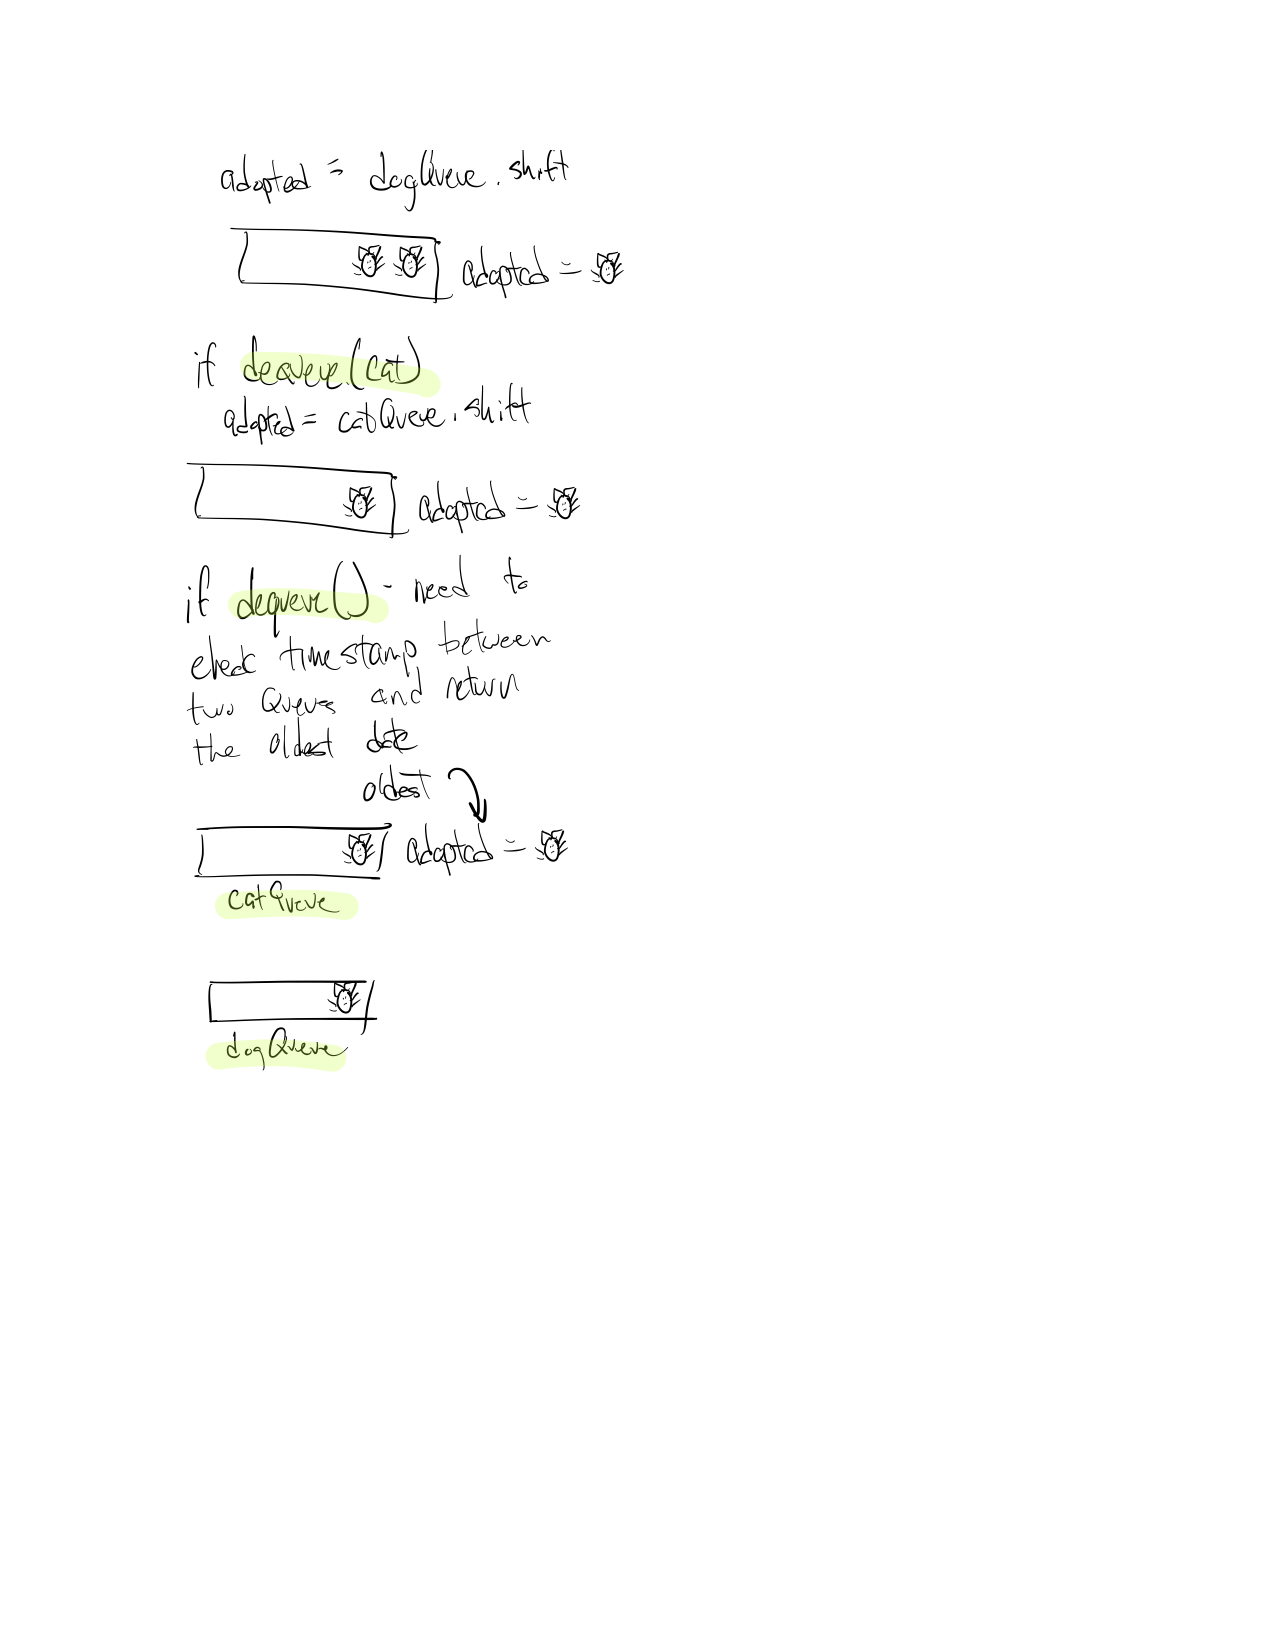 adopted = dogQueue.shift
adopted =
if dequeue(cat)
adopted = catQueue.shift
adopted =
if dequeue() - need to
check timestamp between
two Queues and return
the oldest date
oldest
adopted =
catQueue
dogQueue